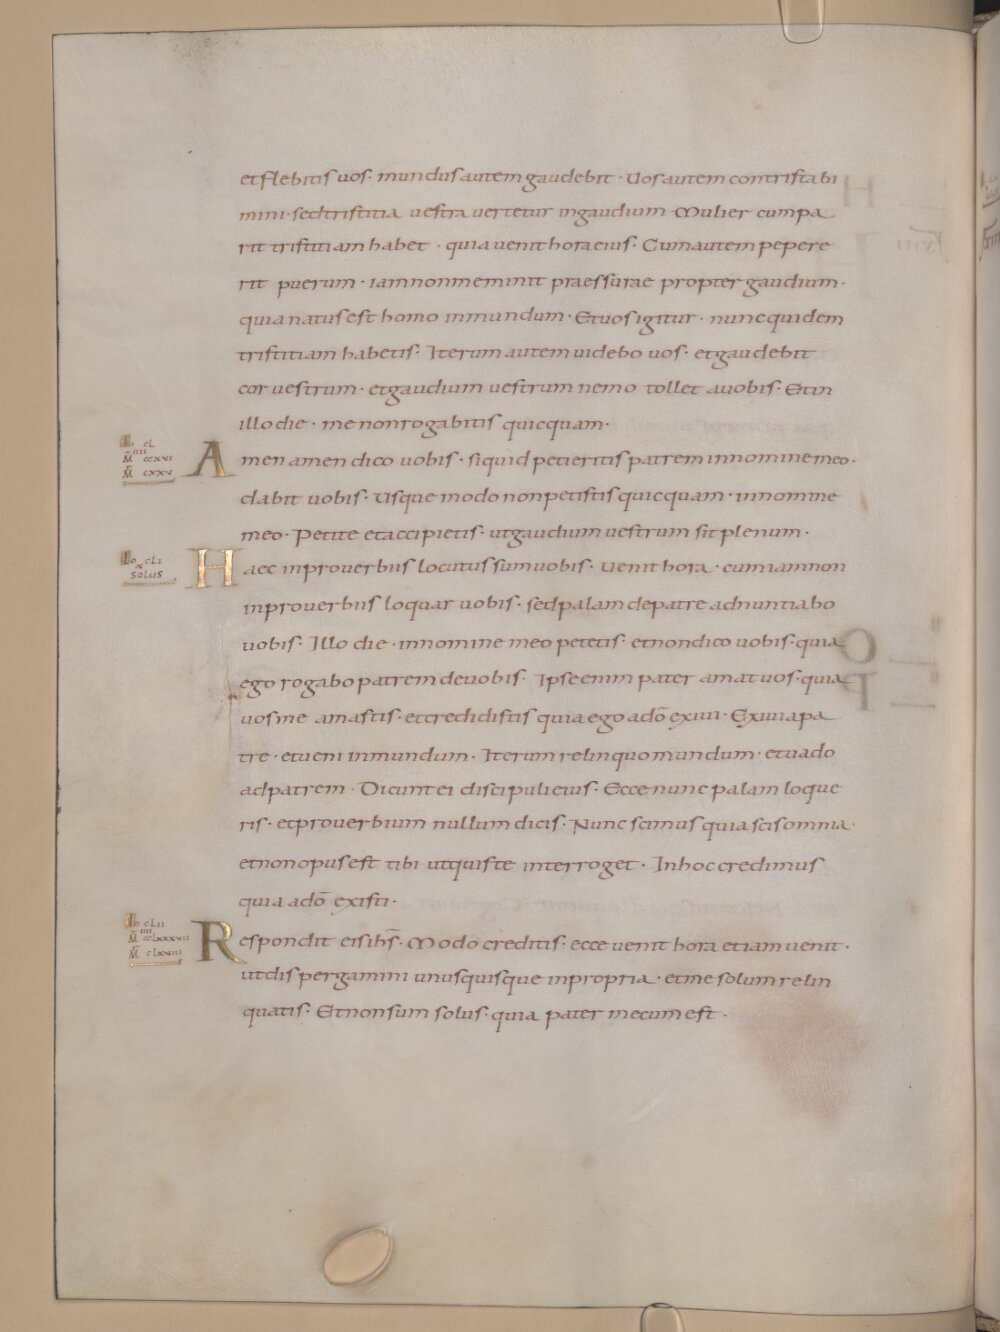 et flebitis uos· mundus autem gaudebit· Uos autem contristabi
mini· sed tristitia uestra uertetur in gaudium· Mulier cum pa
rit tristitiam habet· quia uenit hora eius· Cum autem pepere
rit puerum· iam non meminit praessurae propter gaudium·
quia natus est homo in mundum· Et uos igitur· nunc quidem
tristitiam habetis· Iterum autem uidebo uos· et gaudebit
cor uestrum· et gaudium uestrum nemo tollet a uobis· Et in
illo die· me non rogabitis quicquam·
Io cL
IIII
M̄ ccxvi
M̄ cxxv
Amen amen dico uobis· siquid petieritis patrem in nomine meo·
dabit uobis· Usque modo non petistis quicquam· in nomine
meo· Petite et accipietis· ut gaudium uestrum sit plenum·
Io cLI
x
SOLUS
Haec in prouerbiis locutus sum uobis· uenit hora· cum iam non
in prouerbiis loquar uobis· sed palam de patre adnuntiabo
uobis· Illo die· in nomine meo petetis· et non dico uobis· quia
ego rogabo patrem de uobis· Ipse enim pater amat uos· quia
uos me amastis· et credidistis quia ego a dō exiui· Exiui a pa
tre· et ueni in mundum· Iterum relinquo mundum· et uado
ad patrem· Dicunt ei discipuli eius· Ecce nunc palam loque
ris· et prouerbium nullum dicis· Nunc scimus quia scis omnia·
et non opus est tibi ut quis te interroget· In hoc credimus
quia a dō existi·
Io cLII
IIII
Respondit eis ihs̄· Modo creditis· ecce uenit hora et iam uenit·
ut dispergamini unusquisque in propria· et me solum relin
quatis· Et non sum solus· quia pater mecum est·